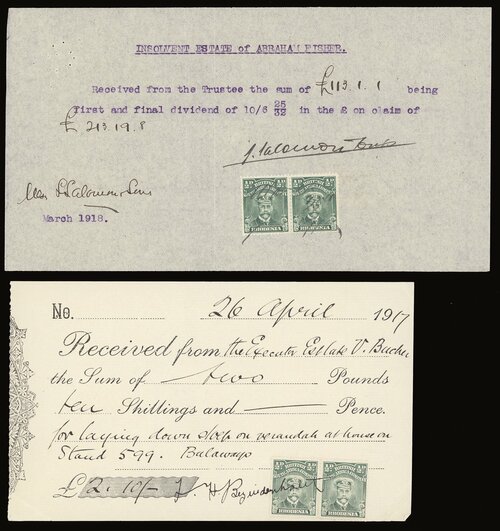 INSOLVENT ESTATE of ABRAHAM FISHER.
Received from the Trustee the sum of £113.1.1 being
first and final dividend of 10/6 25/32 in the £ on claim of
£213.19.8
Salomon
½D BRITISH SOUTH AFRICA COMPANY ½D ½D BRITISH SOUTH AFRICA COMPANY ½D
RHODESIA RHODESIA
Salomon Sons
March 1918.
No. 26 April 1917
Received from the Executor Estate V. Bucher
the Sum of two Pounds
ten Shillings and Pence.
for laying down stoep on verandah at house on
Stand 599. Bulawayo
£2.10/- H Bezuidenhout
½D BRITISH SOUTH AFRICA COMPANY ½D ½D BRITISH SOUTH AFRICA COMPANY ½D
RHODESIA RHODESIA